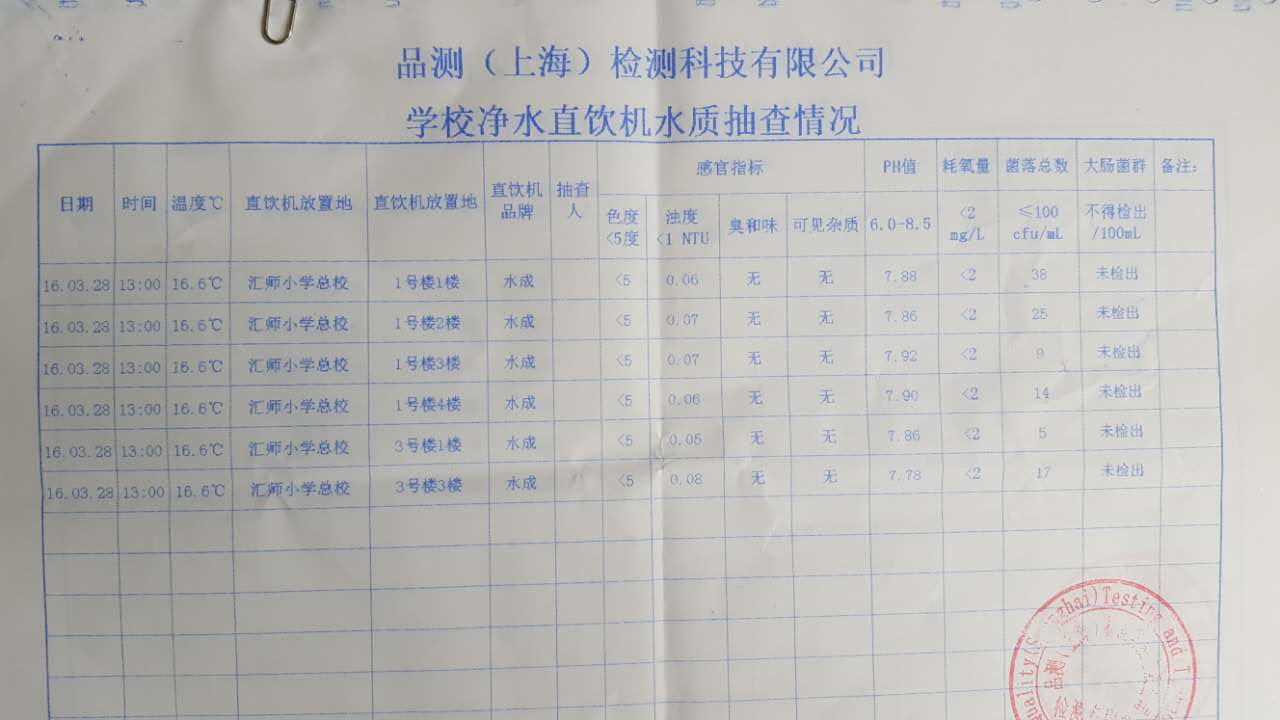 品测（上海）检测科技有限公司
学校净水直饮机水质抽查情况
日期 时间 温度℃ 直饮机放置地 直饮机放置地 直饮机品牌 抽查人 感官指标 PH值 耗氧量 菌落总数 大肠菌群 备注:
色度<5度 浊度<1 NTU 臭和味 可见杂质 6.0-8.5 <2 mg/L ≤100 cfu/mL 不得检出/100mL
16.03.28 13:00 16.6℃ 汇师小学总校 1号楼1楼 水成 <5 0.06 无 无 7.88 <2 38 未检出
16.03.28 13:00 16.6℃ 汇师小学总校 1号楼2楼 水成 <5 0.07 无 无 7.86 <2 25 未检出
16.03.28 13:00 16.6℃ 汇师小学总校 1号楼3楼 水成 <5 0.07 无 无 7.92 <2 9 未检出
16.03.28 13:00 16.6℃ 汇师小学总校 1号楼4楼 水成 <5 0.06 无 无 7.90 <2 14 未检出
16.03.28 13:00 16.6℃ 汇师小学总校 3号楼1楼 水成 <5 0.05 无 无 7.86 <2 5 未检出
16.03.28 13:00 16.6℃ 汇师小学总校 3号楼3楼 水成 <5 0.08 无 无 7.78 <2 17 未检出
Testing and T
品测